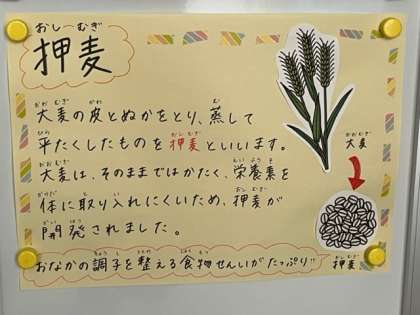 おしーむぎ
押麦
大麦の皮とぬかをとり、蒸して
平たくしたものを押麦といいます。
大麦は、そのままではかたく、栄養素を
体に取り入れにくいため、押麦が
開発されました。
おなかの調子を整える食物せんいがたっぷり!!
大麦
押麦